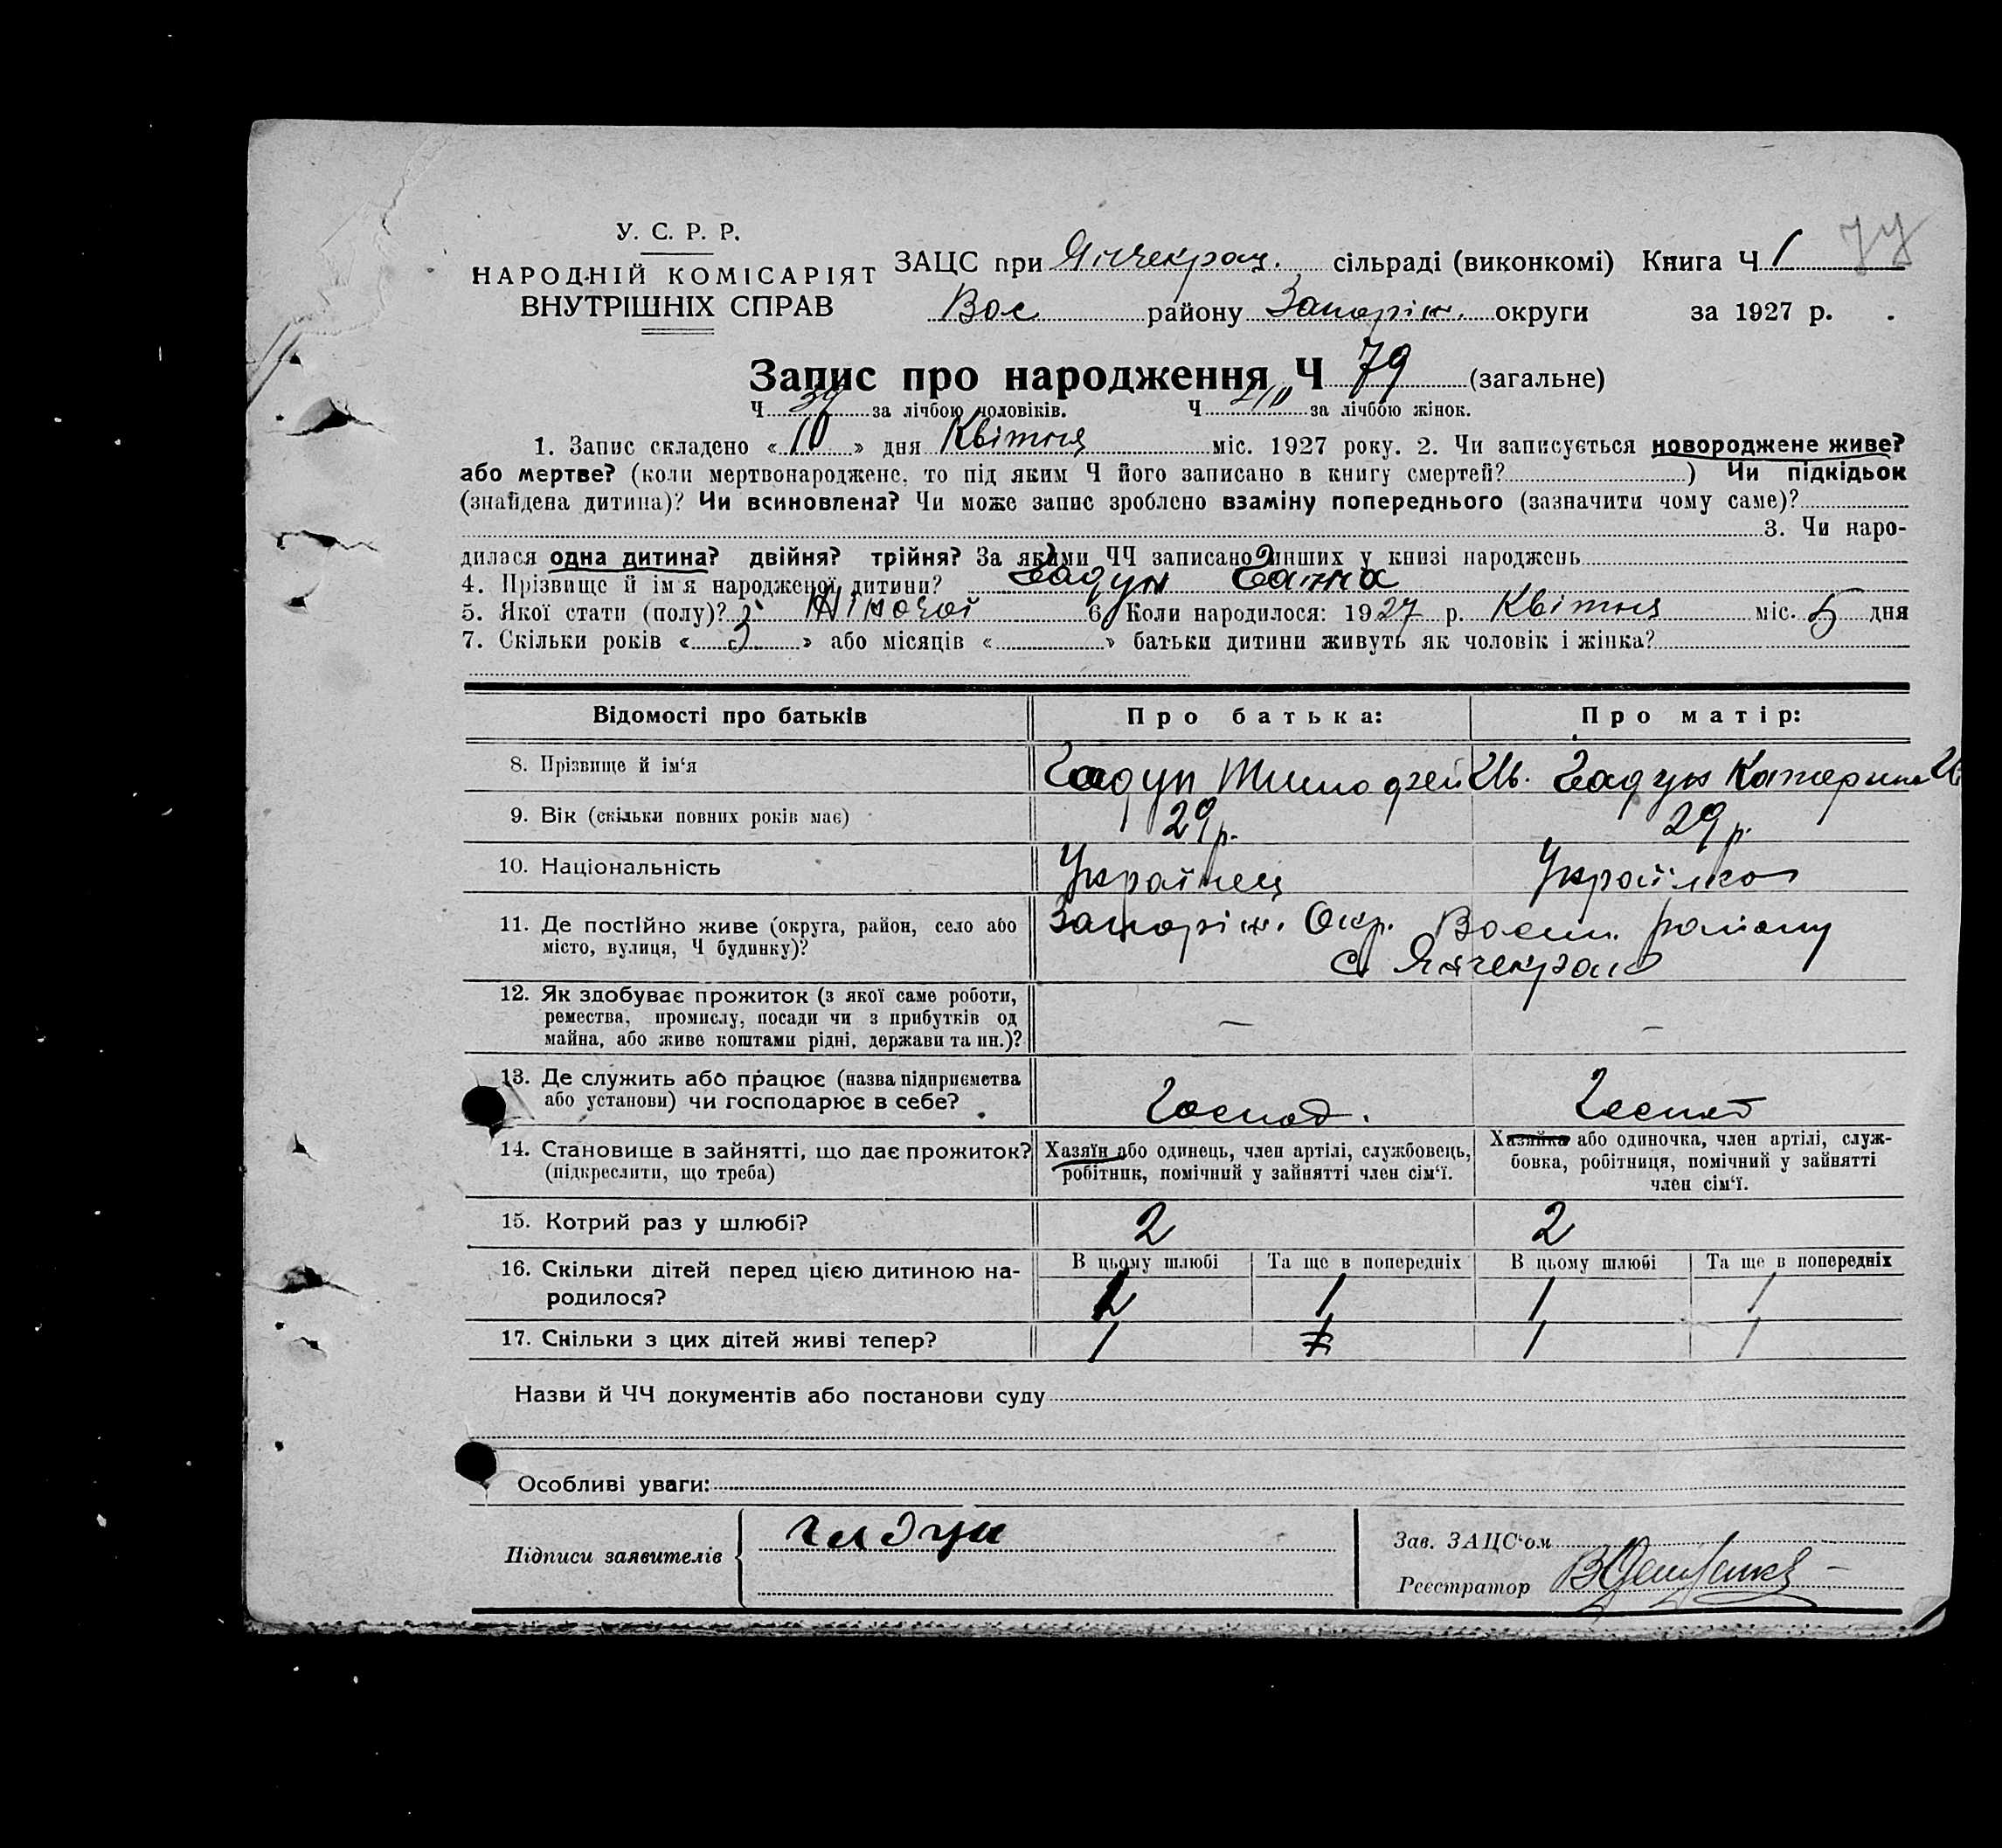 У. С. Р. Р.
НАРОДНІЙ КОМІСАРІЯТ
ВНУТРІШНІХ СПРАВ
ЗАЦС при Янчекрац. сільраді (виконкомі) Книга Ч 1 77
Вас району Запоріж. округи за 1927 р.
Запис про народження Ч 79 (загальне)
Ч 39 за лічбою чоловіків. Ч за лічбою жінок.
1. Запис складено « 10 » дня Квітня міс. 1927 року. 2. Чи записується новороджене живе?
або мертве? (коли мертвонароджене, то під яким Ч його записано в книгу смертей? ) Чи підкідьок
(знайдена дитина)? Чи всиновлена? Чи може запис зроблено взаміну попереднього (зазначити чому саме)?
3. Чи наро-
дилася одна дитина? двійня? трійня? За якими ЧЧ записано инших у книзі народжень
4. Прізвище й ім'я народженої дитини? Гадун Ганна
5. Якої стати (полу)? Жіночої 6. Коли народилося: 1927 р. Квітня міс. 5 дня
7. Скільки років « 3 » або місяців « » батьки дитини живуть як чоловік і жінка?
Відомості про батьків Про батька: Про матір:
8. Прізвище й ім'я Гадун Тимофзей Ив. Гадун Катерина Ив
9. Вік (скільки повних років має) 29 р. 29 р.
10. Національність Українец Українка
11. Де постійно живе (округа, район, село або Запоріж. Окр. Васил. району
місто, вулиця, Ч будинку)? с. Янчекрак
12. Як здобуває прожиток (з якої саме роботи,
ремества, промислу, посади чи з прибутків од — —
майна, або живе коштами рідні, держави та ин.)?
13. Де служить або працює (назва підприємства
або установи) чи господарює в себе? Господ. Господ
14. Становище в зайнятті, що дає прожиток? Хазяїн або одинець, член артілі, службовець, Хазяйка або одиночка, член артілі, служ-
(підкреслити, що треба) робітник, помічний у зайнятті член сім'ї. бовка, робітниця, помічний у зайнятті
член сім'ї.
15. Котрий раз у шлюбі? 2 2
16. Скільки дітей перед цією дитиною на- В цьому шлюбі Та ще в попередніх В цьому шлюбі Та ще в попередніх
родилося? 1 1 1
17. Скільки з цих дітей живі тепер? 1 1 1
Назви й ЧЧ документів або постанови суду
Особливі уваги:
Підписи заявителів гадун
Зав. ЗАЦС'ом
Реєстратор